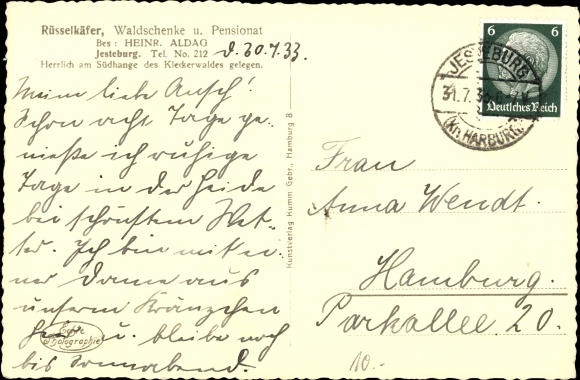 Rüsselkäfer, Waldschenke u. Pensionat
Bes: HEINR. ALDAG
Jesteburg. Tel. No. 212
Herrlich am Südhange des Kleckerwaldes gelegen.
d. 30.7.33.
Meine liebe Ansch!
Schon acht Tage ge-
nieße ich ruhige
Tage in der Heide
bei schönstem Wet-
ter. Ich bin mit ei-
ner Dame aus
unserm Kränzchen
hier u. bleibe noch
bis Sonnabend.
Echte Photographie
Kunstverlag Kumm Gebr., Hamburg 8
6 6
Deutsches Reich
JESTEBURG
31.7.33
(Kr. HARBURG)
Frau
Anna Wendt.
Hamburg.
Parkallee 20.
10.-